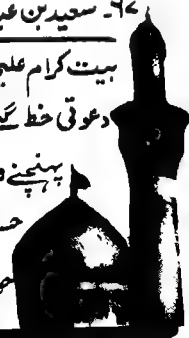 ۶۷۔ سعید بن عبد
بیت کرام علیہ
دعوتی خط گ
پہنچنے و
حس